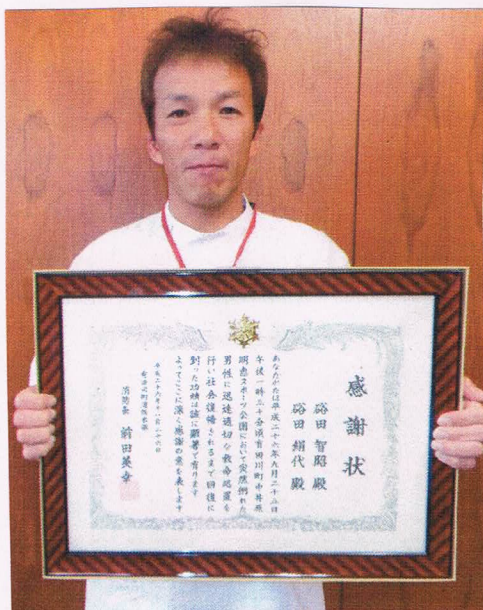 感謝状
田智昭殿
田絹代殿
あなたがたは平成二十六年九月二十
午後一時三十分頃有田川町中井原
明恵スポーツ公園において突然倒れた
男性に迅速適切な救命処置を
行い社会復帰されるまで回復に
到った功績は誠に顕著で有ります
よってここに深く感謝の意を表します
平成二十六年十一月二十六日
有田川町消防本部
消防長 前田英幸